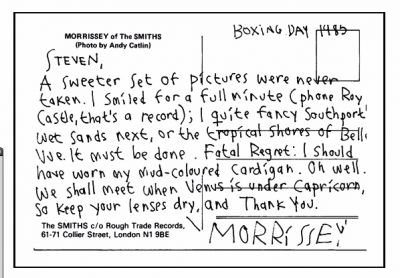 MORRISSEY of The SMITHS
(Photo by Andy Catlin)
BOXING DAY 1485
STEVEN,
A sweeter set of pictures were never
taken. I smiled for a full minute (phone Roy
Castle, that's a record); I quite fancy Southport
wet sands next, or the tropical shores of Belle
Vue. It must be done. Fatal Regret: I should
have worn my mud-coloured cardigan. Oh well.
We shall meet when Venus is under Capricorn,
so keep your lenses dry, and Thank You.
The SMITHS c/o Rough Trade Records,
61-71 Collier Street, London N1 9BE
MORRISSEY